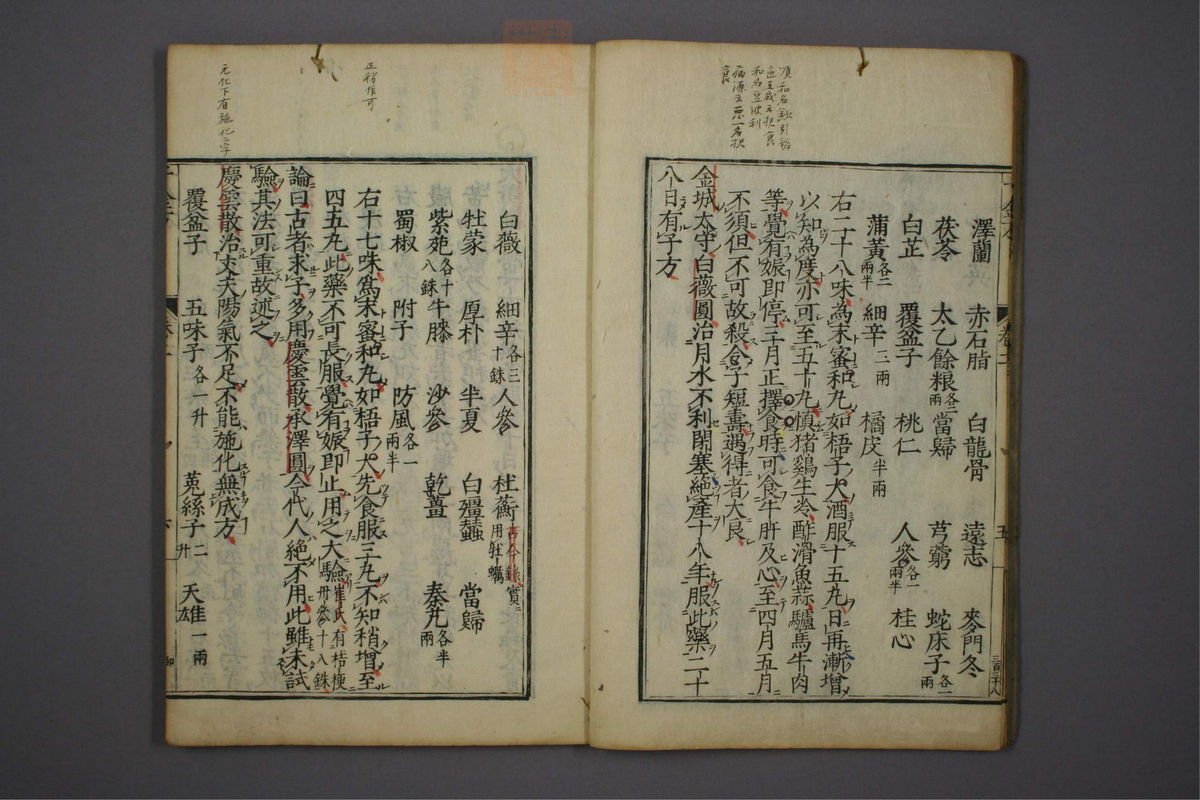 澤蘭 赤石脂 白龍骨 遠志 麥門冬
茯苓 太乙餘粮各二兩 當歸 芎藭 蛇床子各一兩
白芷 覆盆子 桃仁 人參各一兩半 桂心
蒲黃各二兩半 細辛二兩 橘皮半兩
右二十八味為末蜜和丸如梧子大酒服十五丸日再漸增
以知為度亦可至五十丸慎猪雞生冷酢滑魚蒜驢馬牛肉
等覺有娠即停三月正擇食時可食牛肝及心至四月五月
不須但不可故殺令子短壽遇得者大良
金城太守白薇圓治月水不利閉塞絕產十八年服此藥二十
八日有子方
白薇 細辛各三十銖 人參 杜蘅古今錄實用牡蠣
牡蒙 厚朴 半夏 白殭蠶 當歸
紫菀各十八銖 牛膝 沙參 乾薑 秦艽各半兩
蜀椒 附子 防風各一兩半
右十七味為末蜜和丸如梧子大先食服三丸不知稍增至
四五丸此藥不可長服覺有娠即止用之大驗崔氏有桔梗丹參十八銖
論曰古者求子多用慶雲散承澤圓今代人絕不用此雖未試
驗其法可重故述之
慶雲散治丈夫陽氣不足不能施化無成方
覆盆子 五味子各一升 菟絲子二升 天雄一兩
正稍作可
元化下有施化二字